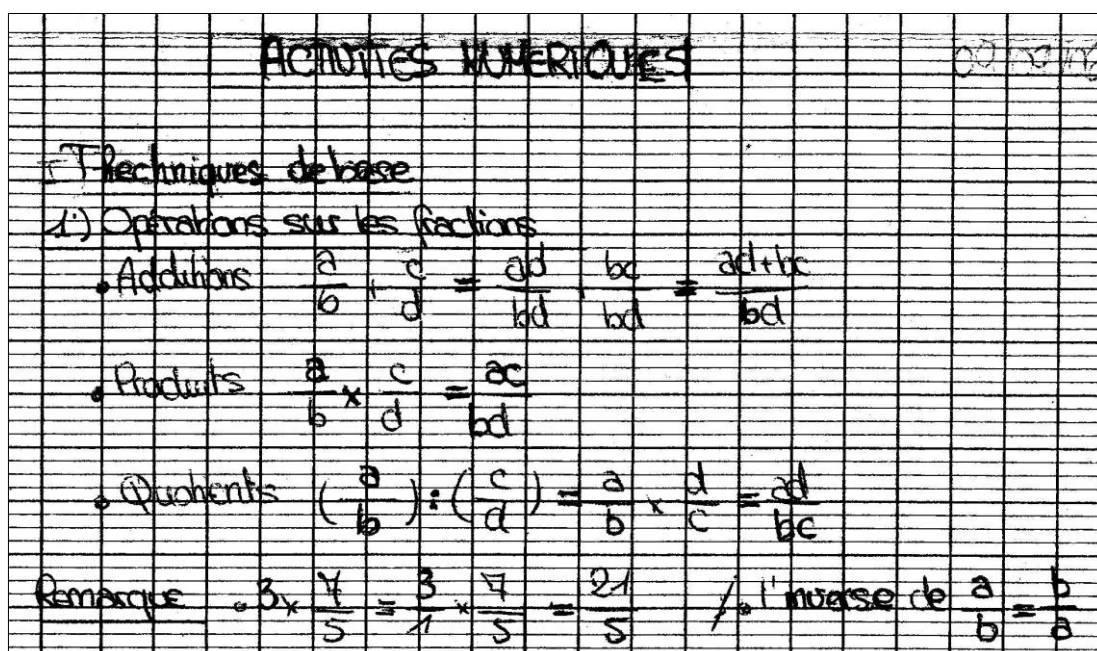 ACTIVITES NUMERIQUES
I Thechniques de base
1°) Opérations sur les fractions
• Additions a/b + c/d = ad/bd + bc/bd = ad+bc/bd
• Produits a/b × c/d = ac/bd
• Quotients (a/b) : (c/d) = a/b × d/c = ad/bc
Remarque • 3 × 7/5 = 3/1 × 7/5 = 21/5 / • l'inverse de a/b = b/a